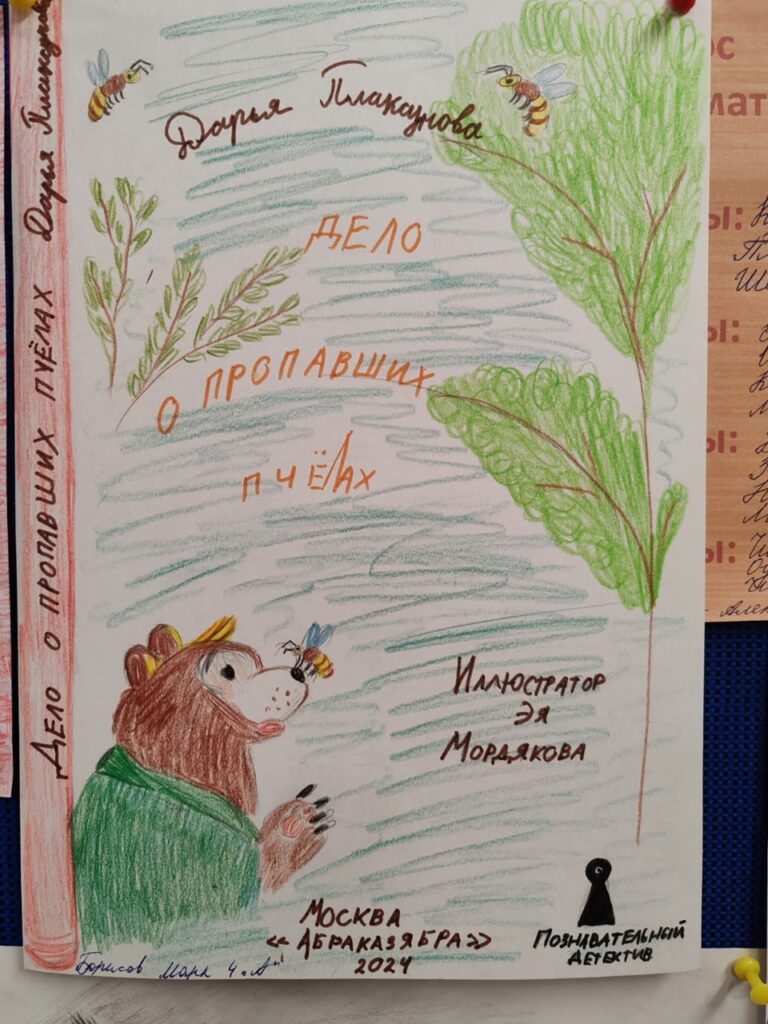 Дарья Плакунова
ДЕЛО
О ПРОПАВШИХ
ПЧЁЛАХ
Дело о пропавших пчёлах Дарья Плакунова
Иллюстратор
Эя
Мордякова
Москва
«Абраказябра»
2024
Познавательный
детектив
Борисов Марк 4 „А"
ос
мат
ы:
ы:
ы:
ы: